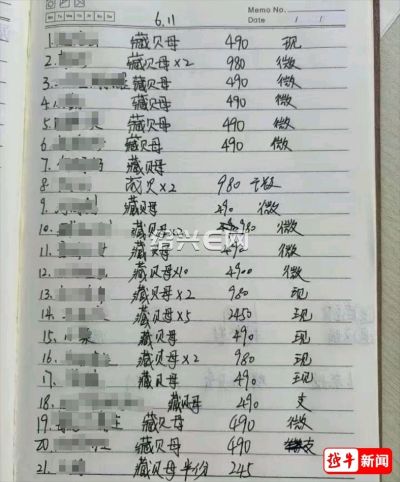 Memo No.
Mo Tu We Th Fr Sa Su
Date / /
6.11
1. 藏贝母 490 现
2. 藏贝母×2 980 微
3. 藏贝母 490 微
4. 藏贝母 490 微
5. 藏贝母 490 微
6. 藏贝母 490 微
7. 藏贝母
8. ×2 980
9. 藏贝母 490 微
10. 藏贝母×2 980 微
11. 藏贝母 490 微
12. 藏贝母×10 4900 微
13. 藏贝母×2 980 现
14. 藏贝母×5 2450 现
15. 藏贝母 490 现
16. 藏贝母×2 980 现
17. 藏贝母 490 现
18. 藏贝母 490 支
19. 藏贝母 490 微
20. 藏贝母 490 支
21. 藏贝母半份 245
绍兴E网
越牛新闻